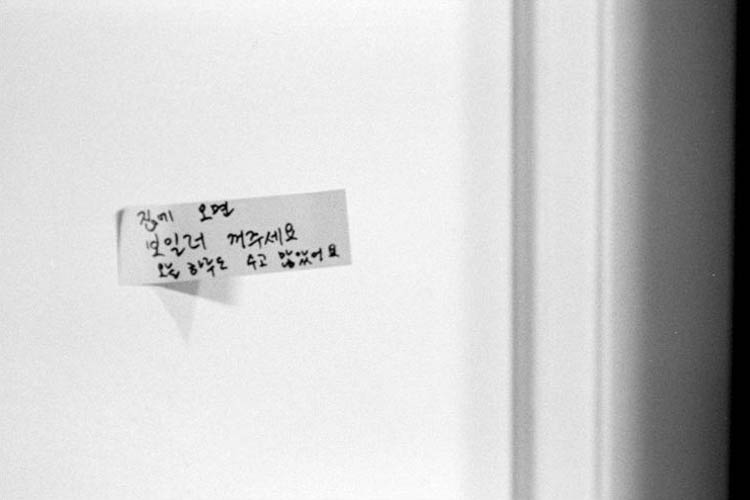 집에 오면
보일러 꺼주세요
오늘 하루도 수고 많았어요